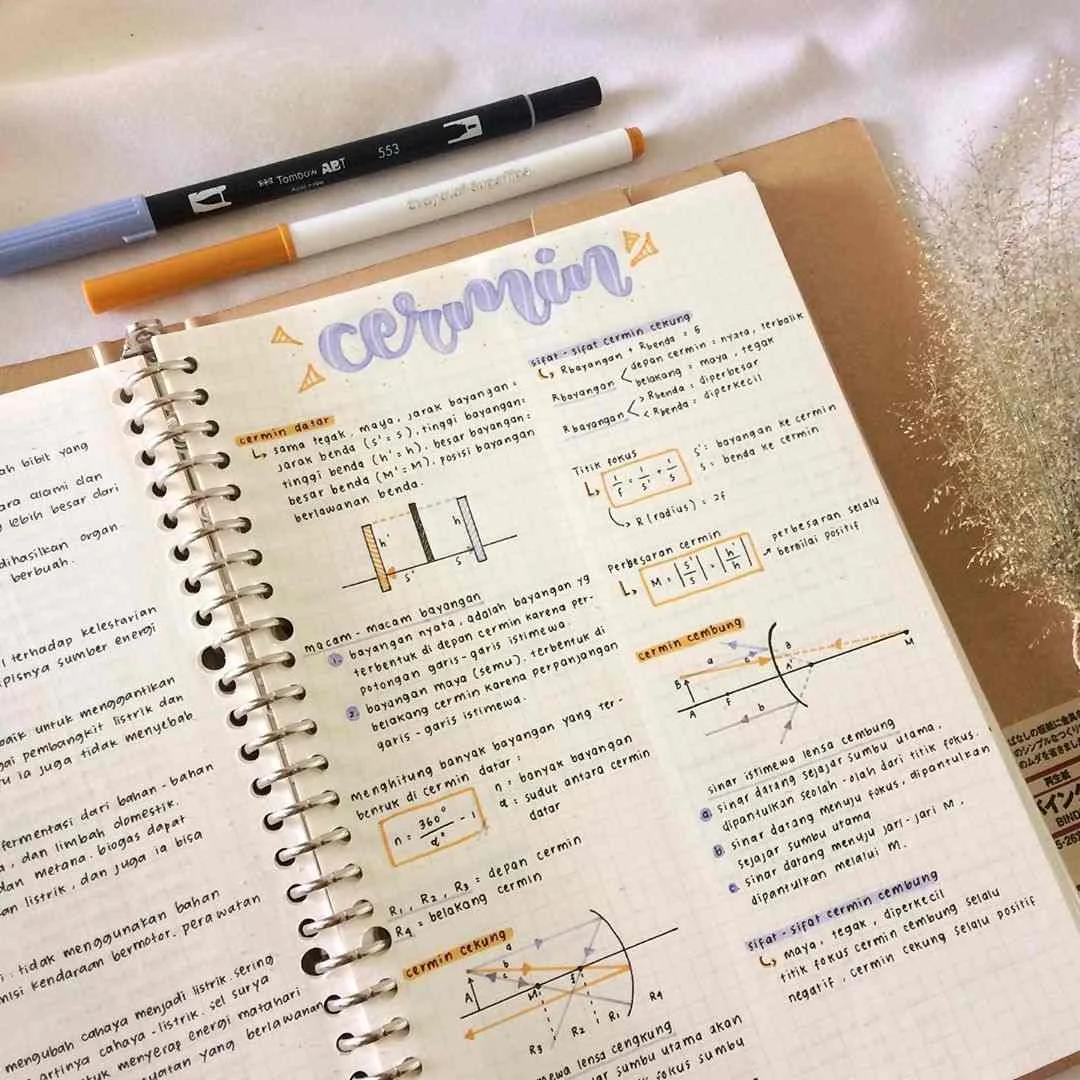 Tombow ABT 553
cermin
cermin datar
sama tegak, maya, jarak bayangan =
jarak benda (s' = s), tinggi bayangan =
tinggi benda (h' = h), besar bayangan =
besar benda (M' = M), posisi bayangan
berlawanan benda.
h'
h
s'
s
macam - macam bayangan
1. bayangan nyata, adalah bayangan yg
terbentuk di depan cermin karena per-
potongan garis - garis istimewa.
2. bayangan maya (semu), terbentuk di
belakang cermin karena perpanjangan
garis - garis istimewa.
menghitung banyak bayangan yang ter-
bentuk di cermin datar :
n = 360° / α° - 1
n = banyak bayangan
α = sudut antara cermin
datar
R1, R2, R3 = depan cermin
R4 = belakang cermin
cermin cekung
a
b
c
A
M
f
R4
R1
R2
R3
mewa lensa cengkung
ar sumbu utama akan
fokus sumbu
sifat - sifat cermin cekung
Rbayangan + Rbenda = 5
Rbayangan < depan cermin : nyata, terbalik
belakang = maya, tegak
Rbayangan < > Rbenda : diperbesar
< Rbenda : diperkecil
Titik fokus
1/f = 1/s' + 1/s
s' = bayangan ke cermin
s = benda ke cermin
R (radius) = 2f
Perbesaran cermin
M = |s'/s| = |h'/h|
perbesaran selalu
bernilai positif
cermin cembung
B
a
c
B
A'
M
A
F
b
sinar istimewa lensa cembung
a. sinar datang sejajar sumbu utama,
dipantulkan seolah - olah dari titik fokus.
b. sinar datang menuju fokus, dipantulkan
sejajar sumbu utama
c. sinar datang menuju jari - jari M,
dipantulkan melalui M.
sifat - sifat cermin cembung
maya, tegak, diperkecil
titik fokus cermin cembung selalu
negatif, cermin cekung selalu positif
ah bibit yang
ara alami dan
lebih besar dari
dihasilkan organ
berbuah.
terhadap kelestarian
ipisnya sumber energi
baik untuk menggantikan
gai pembangkit listrik dan
u ia juga tidak menyebab.
fermentasi dari bahan - bahan
, dan limbah domestik.
dan metana. biogas dapat
an listrik, dan juga ia bisa
: tidak menggunakan bahan
misi kendaraan bermotor. perawatan
mengubah cahaya menjadi listrik. sering
artinya cahaya - listrik. sel surya
tuk menyerap energi matahari
uatan yang berlawanan
再生紙
BIND